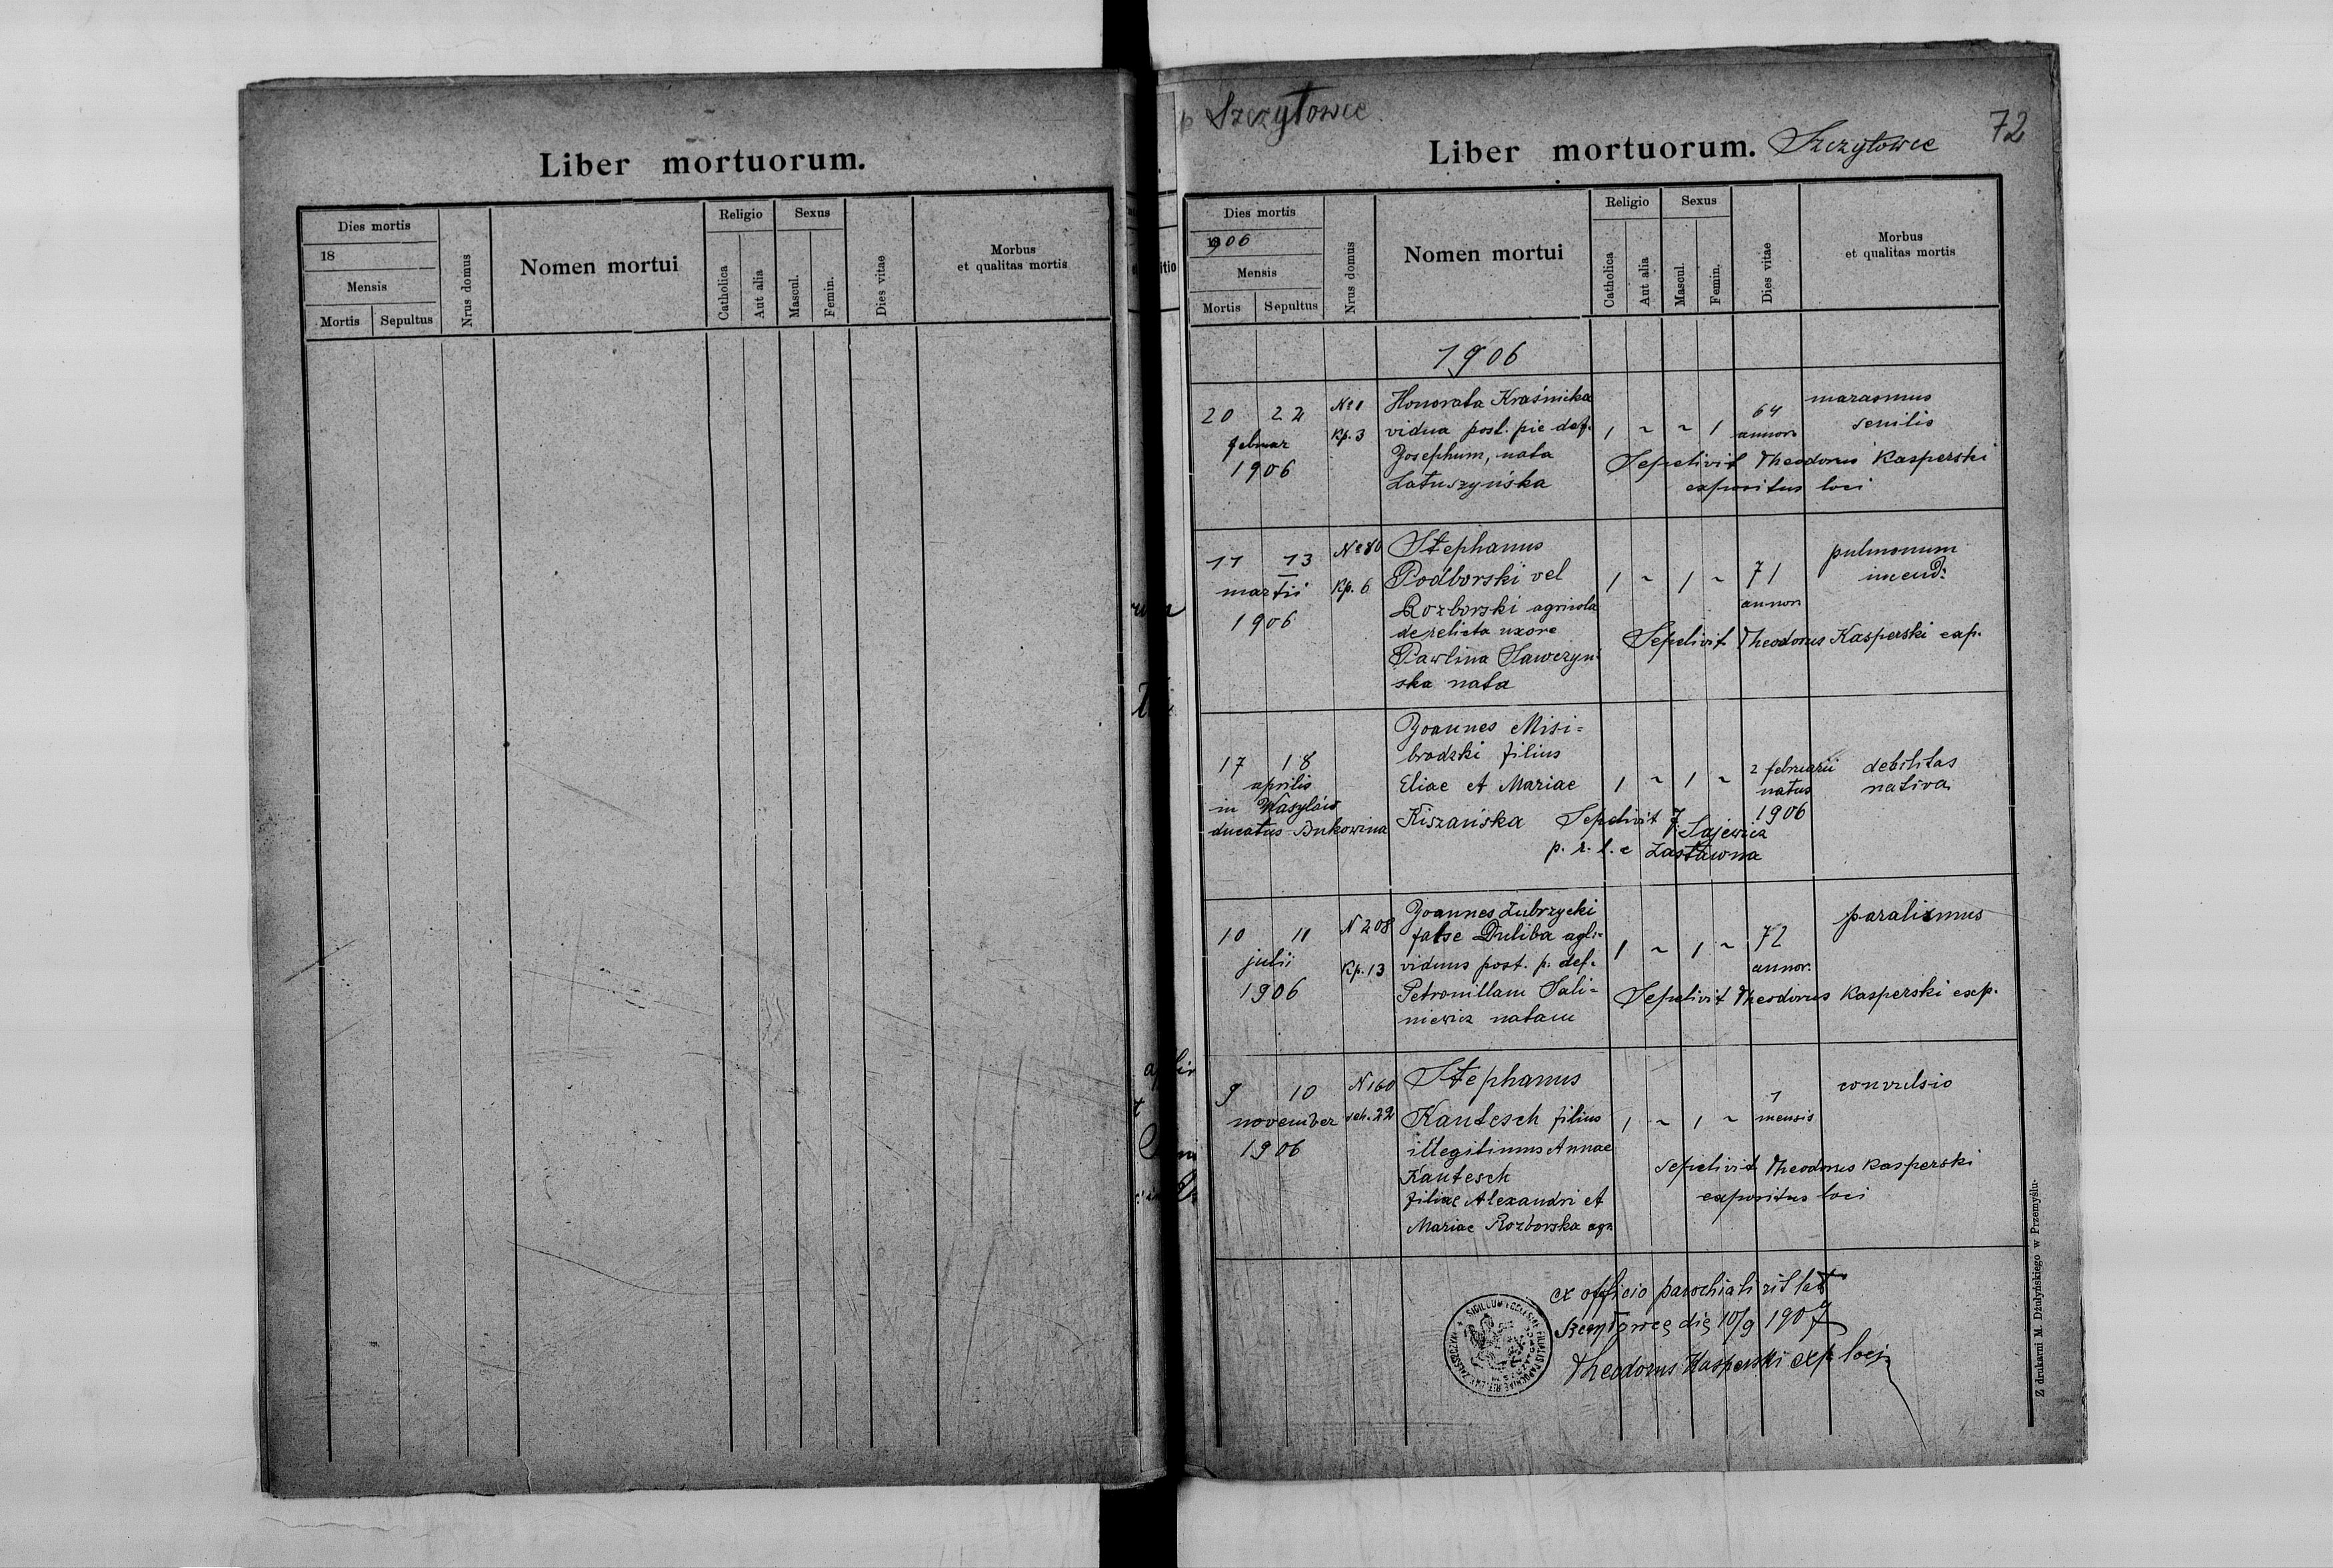 Liber mortuorum.
Dies mortis
18
Mensis
Mortis Sepultus
Nrus domus
Nomen mortui
Religio
Catholica
Aut alia
Sexus
Mascul.
Femin.
Dies vitae
Morbus
et qualitas mortis
Szczytowce
Liber mortuorum. Szczytowce
72
Dies mortis
1906
Mensis
Mortis Sepultus
Nrus domus
Nomen mortui
Religio
Catholica
Aut alia
Sexus
Mascul.
Femin.
Dies vitae
Morbus
et qualitas mortis
1906
20 22
februar
1906
Kp. 3
Honorata Kraśnicka
vidua post. pie def.
Josephum, nata
Latuszyńska
1 ~ ~ 1
64
annor.
marasmus
senilis
Sepelivit Theodorus Kasperski
expositus loci
11 13
martii
1906
N 80
Kp. 6
Stephanus
Podborski vel
Rozborski agricola
derelicta uxore
Pawlina Sawczyń
ska nata
1 ~ 1 ~
71
annor
pulmonum
Sepelivit Theodorus Kasperski exp.
17 18
aprilis
in Wasylów
ducatus Bukowina
Joannes Misi=
brodzki filius
Eliae et Mariae
Kiszańska
1 ~ 1 ~
2 februarii
natus
1906
debilitas
nativa
Sepelivit J. Sajewicz
p. r. l. e Zastawna
10 11
julii
1906
N 208
Kp. 13
Joannes Zubrzycki
false Duliba agli=
viduus post. p. def.
Petronillam Sali=
niewicz natam
1 ~ 1 ~
72
annor.
paralismus
Sepelivit Theodorus Kasperski exp.
9 10
november
1906
N 160
sch. 22
Stephanus
Kantesch filius
illegitimus Annae
Kantesch
filiae Alexandri et
Mariae Rozborska agr.
1 ~ 1 ~
1
mensis
convulsio
Sepelivit Theodorus Kasperski
expositus loci
ex officio parochiali rit lat
Szczytowce die 10/9 1907
Theodorus Kasperski exp loci
Z drukarni M. Dżułyńskiego w Przemyślu.